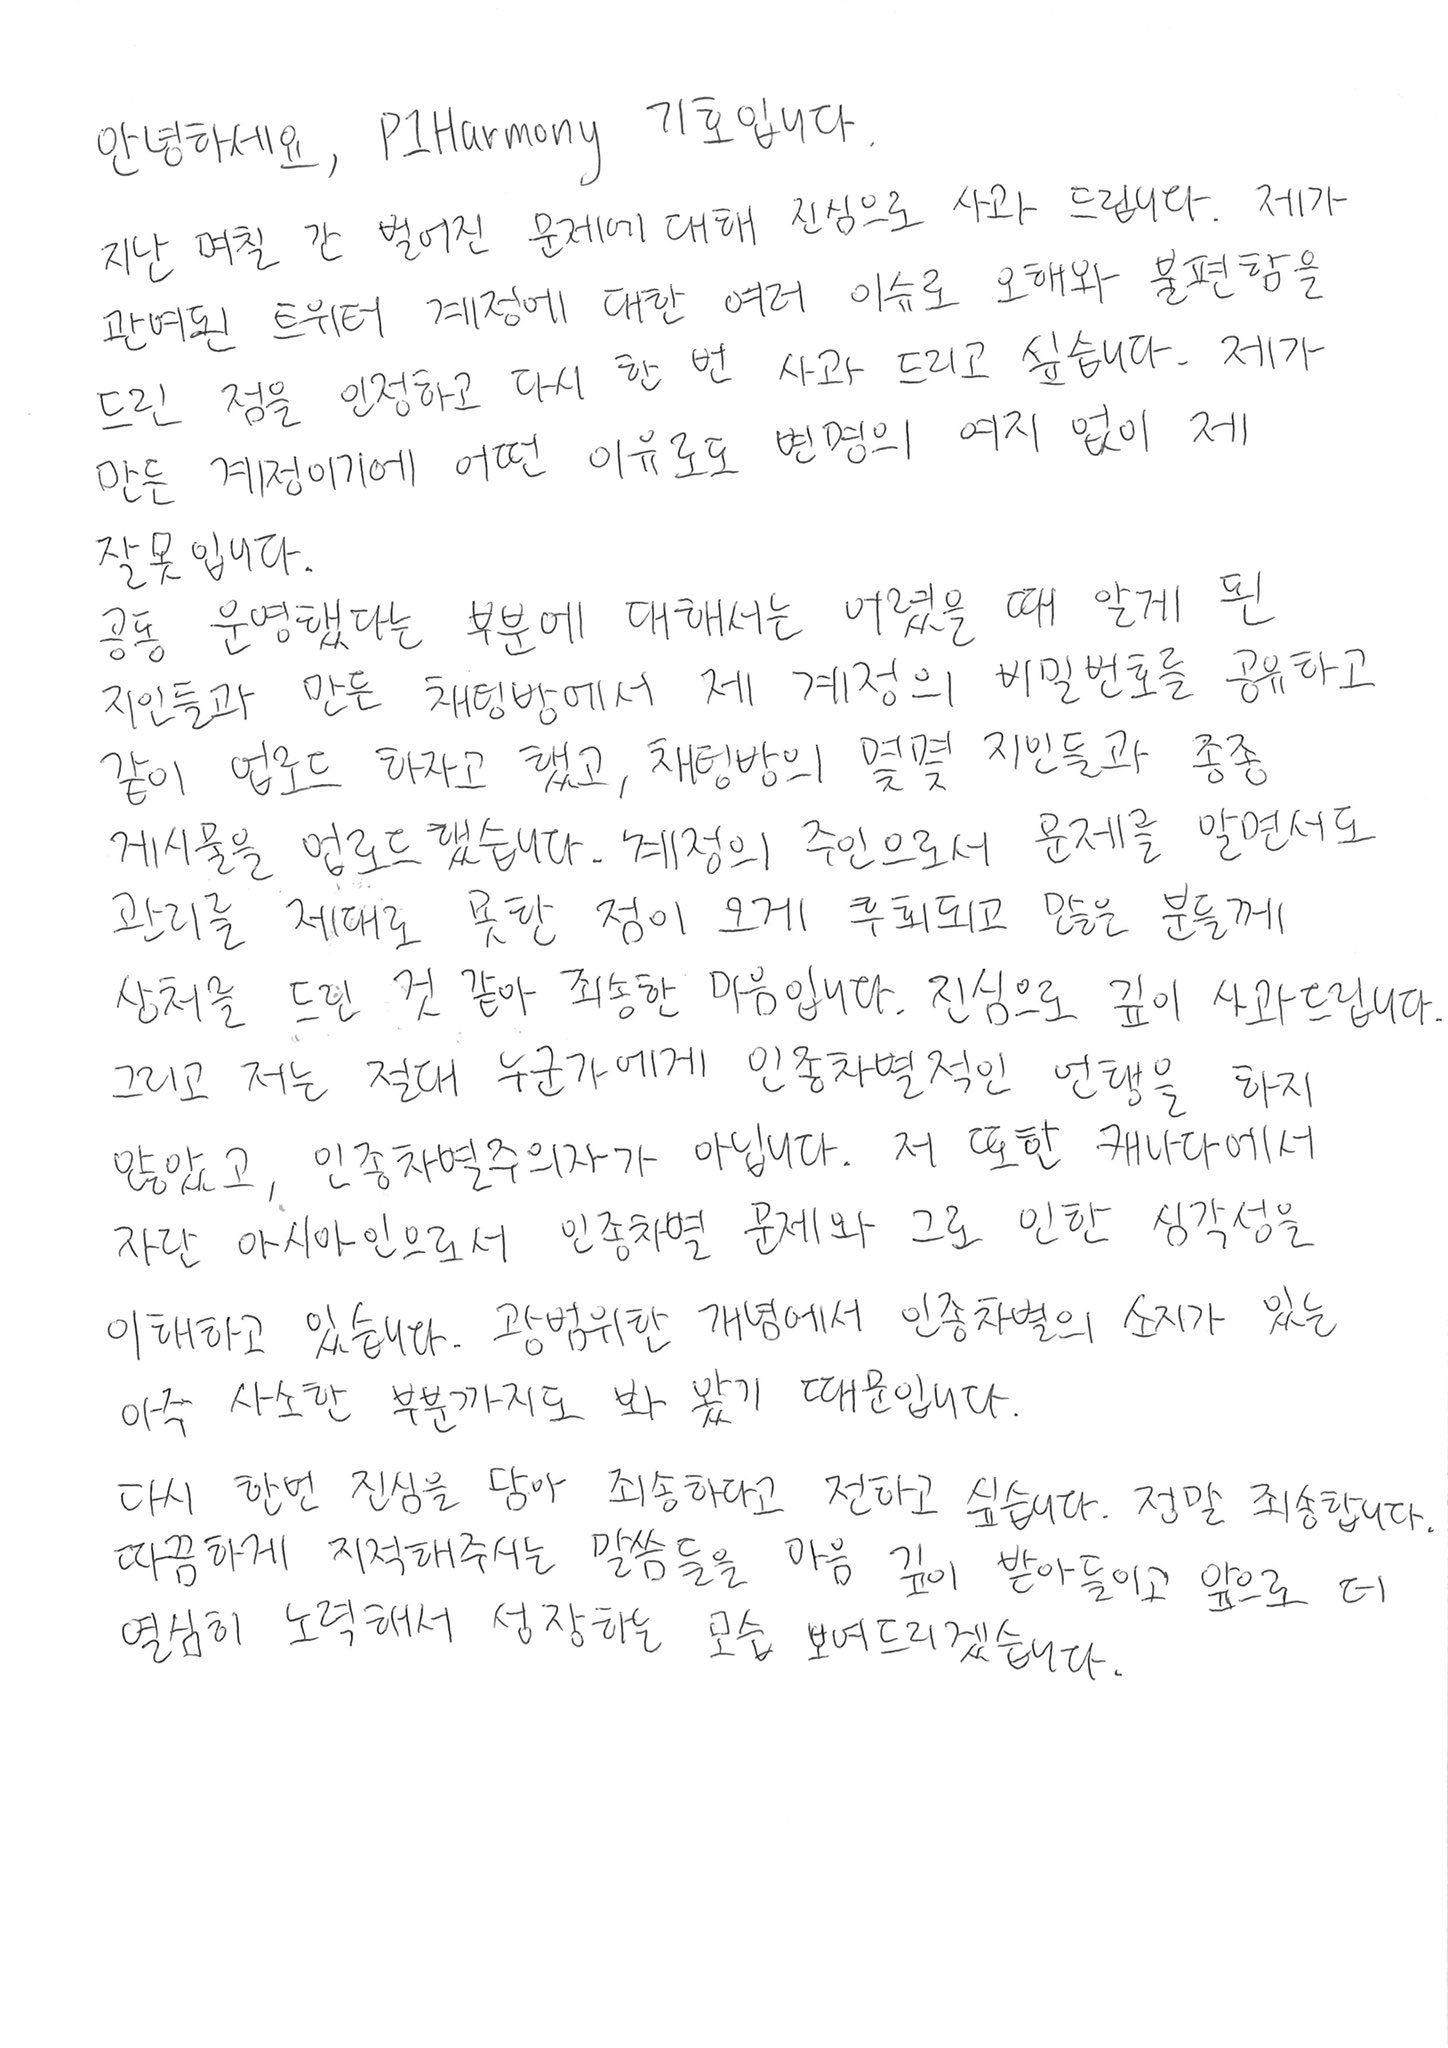 안녕하세요, P1Harmony 기호입니다.
지난 며칠 간 벌어진 문제에 대해 진심으로 사과 드립니다. 제가
관여된 트위터 계정에 대한 여러 이슈로 오해와 불편함을
드린 점을 인정하고 다시 한 번 사과 드리고 싶습니다. 제가
만든 계정이기에 어떤 이유로도 변명의 여지 없이 제
잘못입니다.
공동 운영했다는 부분에 대해서는 어렸을 때 알게 된
지인들과 만든 채팅방에서 제 계정의 비밀번호를 공유하고
같이 업로드 하자고 했고, 채팅방의 몇몇 지인들과 종종
게시물을 업로드했습니다. 계정의 주인으로서 문제를 알면서도
관리를 제대로 못한 점이 오게 후회되고 많은 분들께
상처를 드린 것 같아 죄송한 마음입니다. 진심으로 깊이 사과드립니다.
그리고 저는 절대 누군가에게 인종차별적인 언행을 하지
않았고, 인종차별주의자가 아닙니다. 저 또한 캐나다에서
자란 아시아인으로서 인종차별 문제와 그로 인한 심각성을
이해하고 있습니다. 광범위한 개념에서 인종차별의 소지가 있는
아주 사소한 부분까지도 봐 왔기 때문입니다.
다시 한번 진심을 담아 죄송하다고 전하고 싶습니다. 정말 죄송합니다.
따끔하게 지적해주시는 말씀들을 마음 깊이 받아들이고 앞으로 더
열심히 노력해서 성장하는 모습 보여드리겠습니다.